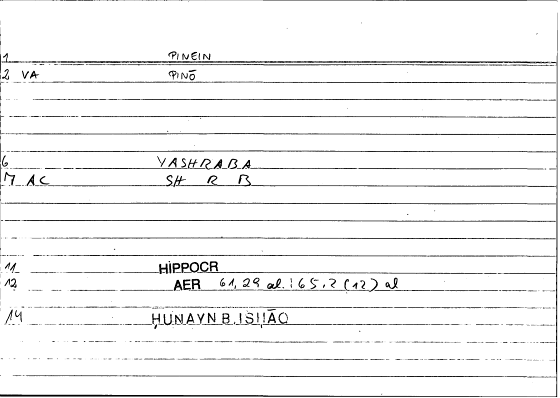 1 PINEIN
2 VA PINŌ
6 YASHRABA
7 AC SH R B
11 HIPPOCR
12 AER 61,29 al. : 65,2 (12) al
14 ḤUNAYN B. ISḤĀQ